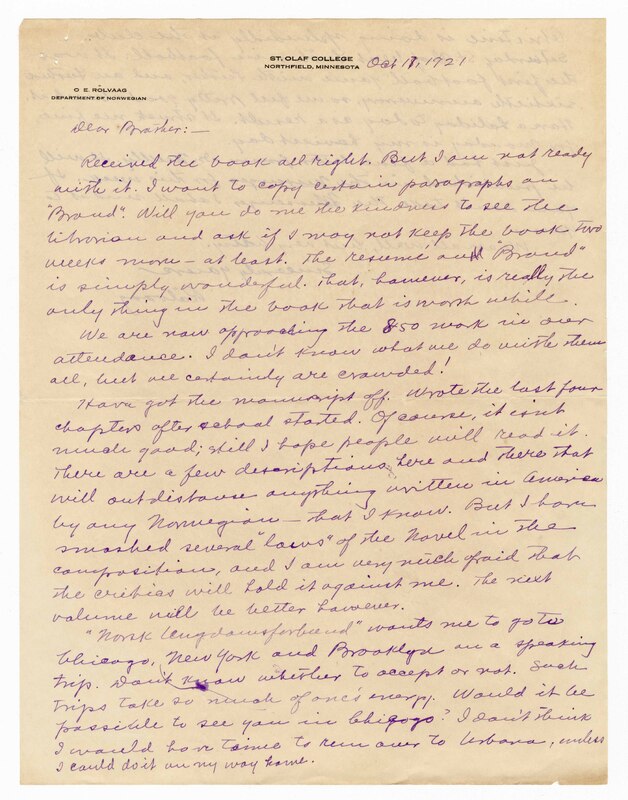 ST. OLAF COLLEGE
NORTHFIELD, MINNESOTA
Oct 17, 1921
O. E. ROLVAAG
DEPARTMENT OF NORWEGIAN
Dear Brother:—
Received the book all right. But I am not ready
with it. I want to copy certain paragraphs on
"Brand". Will you do me the kindness to see the
librarian and ask if I may not keep the book two
weeks more — at least. The resumé on "Brand"
is simply wonderful. That, however, is really the
only thing in the book that is worth while.
We are now approaching the 850 mark in our
attendance. I don't know what we do with them
all, but we certainly are crowded!
Have got the manuscript off. Wrote the last four
chapters after school started. Of course, it isn't
much good; still I hope people will read it.
There are a few descriptions here and there that
will outdistance anything written in America
by any Norwegian — that I know. But I have
smashed several "laws" of the Novel in the
composition, and I am very much fraid that
the critics will hold it against me. The next
volume will be better however.
"Norsk Ungdomsforbund" wants me to go to
Chicago, New York and Brooklyn on a speaking
trip. Don't know whether to accept or not. Such
trips take so much of one's energy. Would it be
possible to see you in Chigogo? I don't think
I would have time to run over to Urbana, unless
I could do it on my way home.